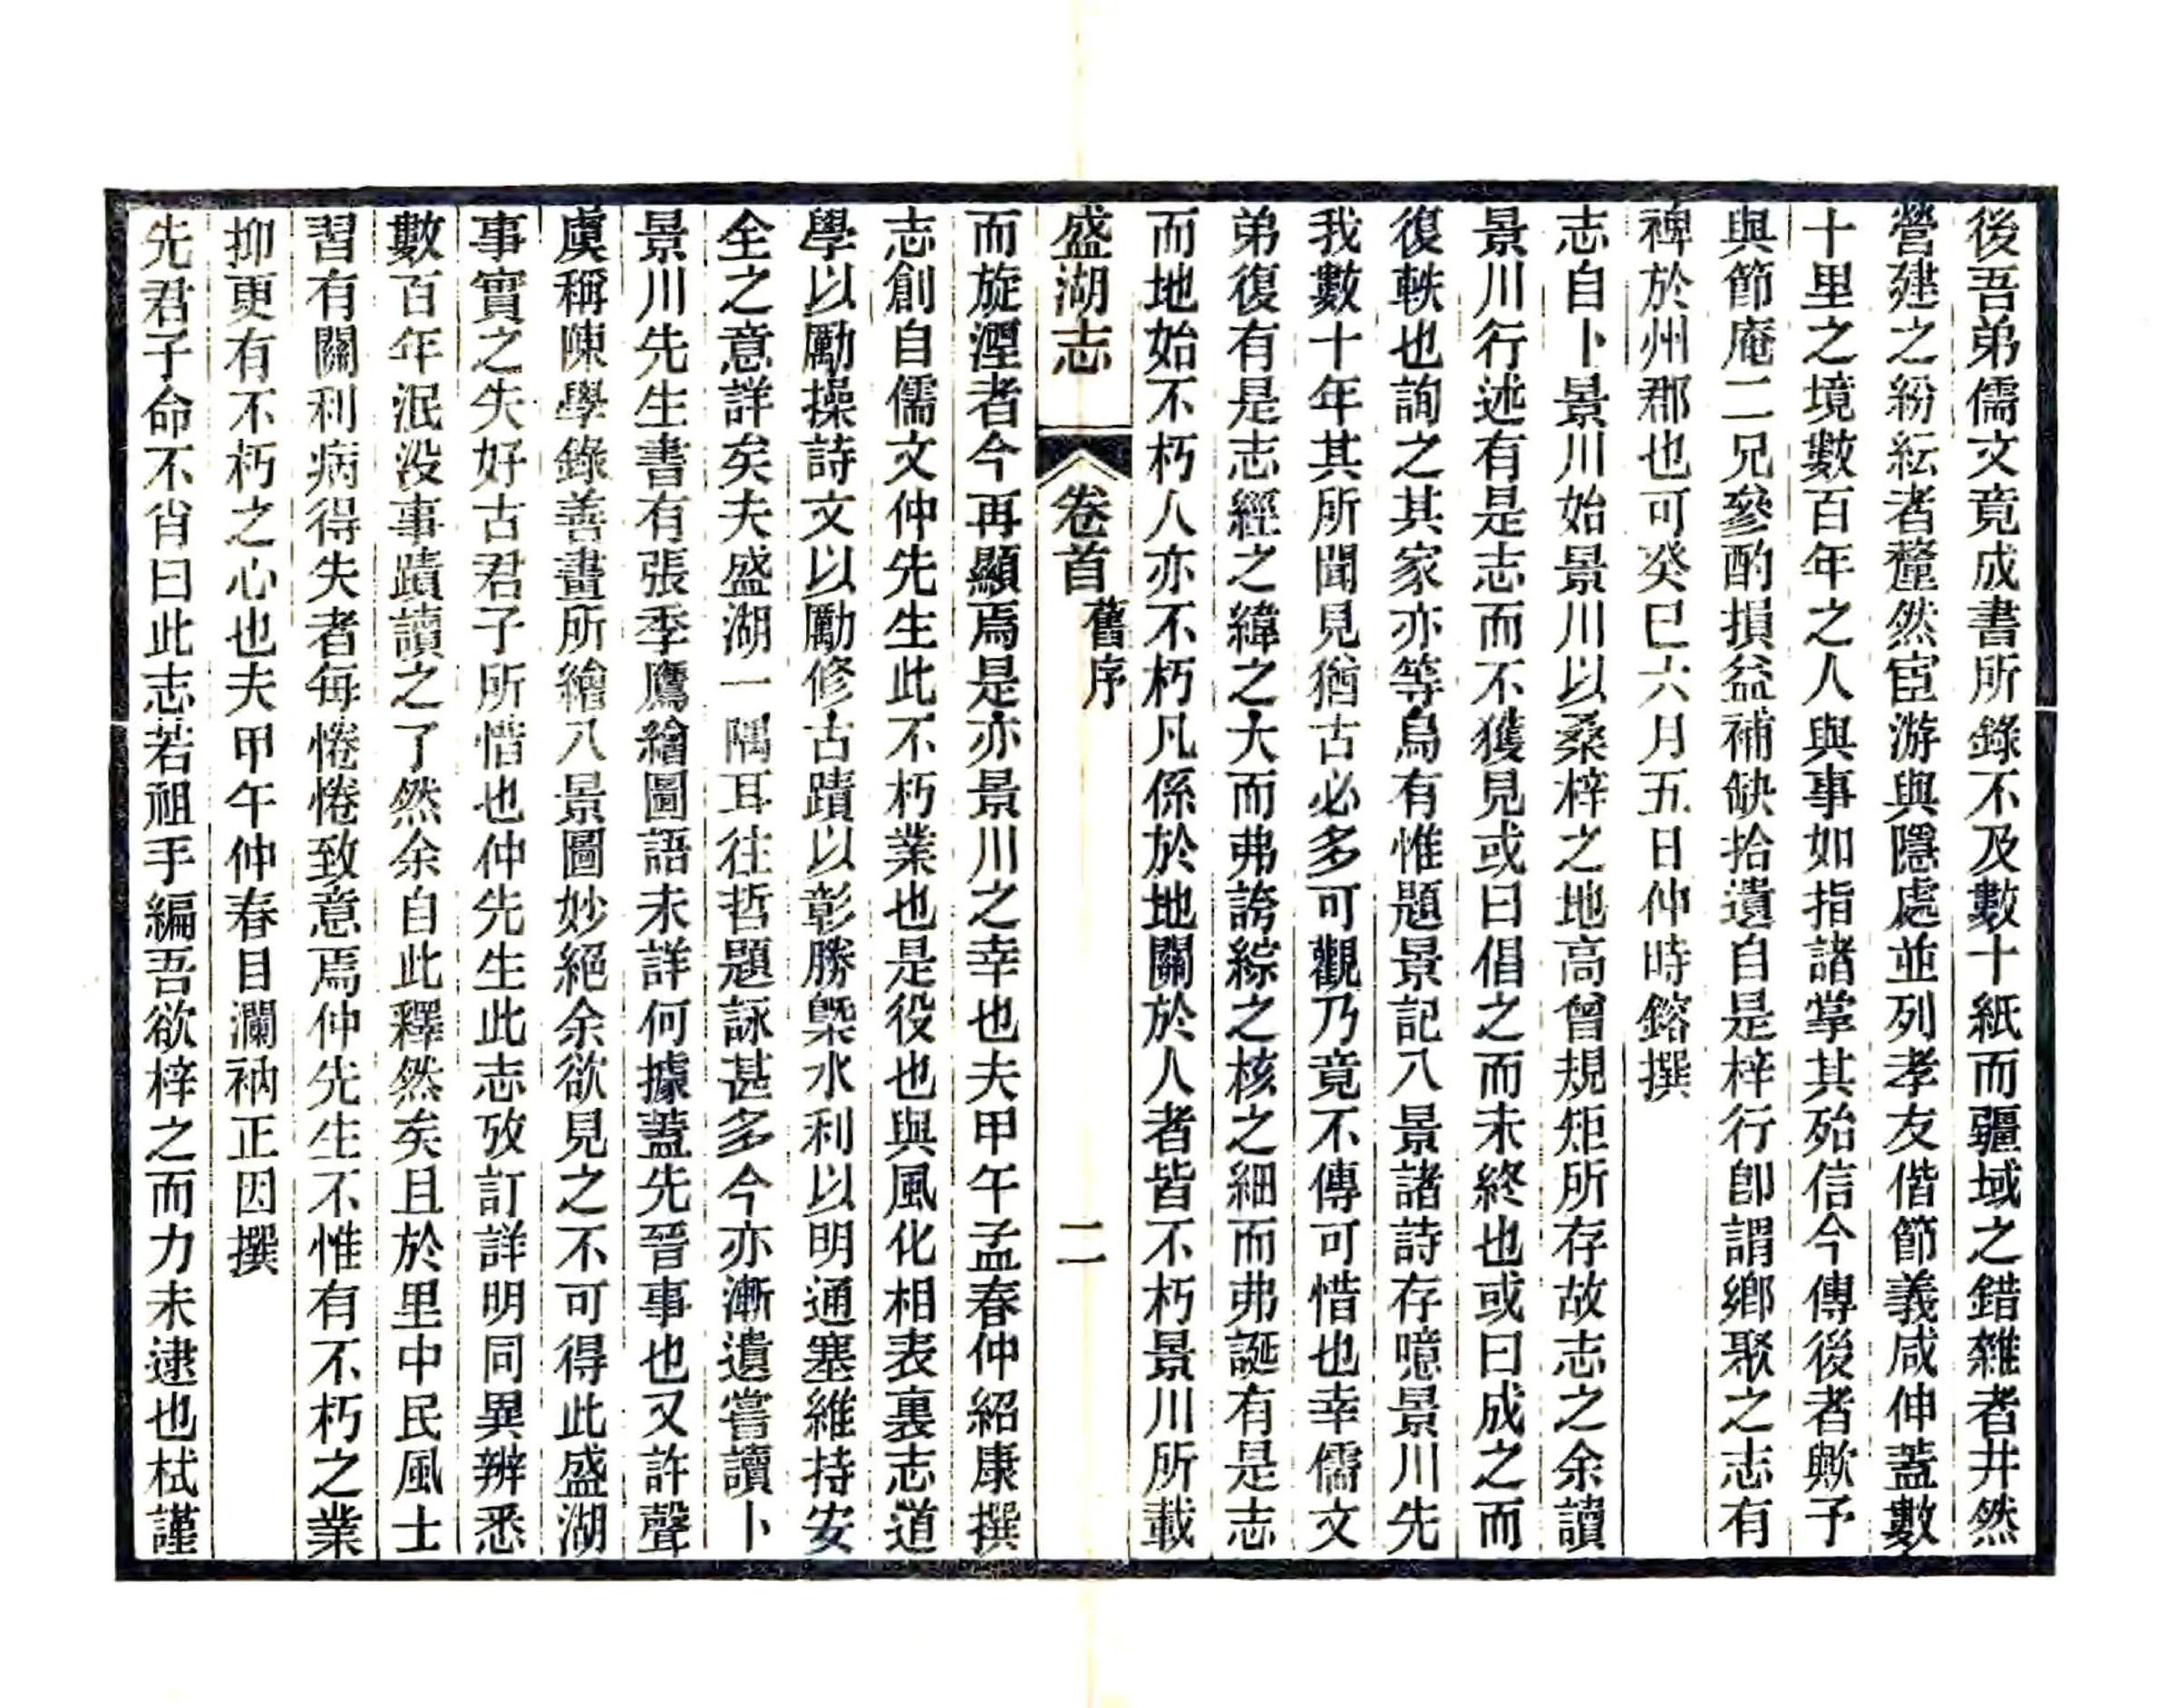 後吾弟儒文竟成書所錄不及數十紙而疆域之錯雜者井然
營建之紛紜者釐然宦游與隱處並列孝友偕節義咸伸蓋數
十里之境數百年之人與事如指諸掌其殆信今傳後者歟予
與節庵二兄參酌損益補缺拾遺自是梓行卽謂鄉聚之志有
裨於州郡也可癸巳六月五日仲時鎔撰
志自卜景川始景川以桑梓之地高曾規矩所存故志之余讀
景川行述有是志而不獲見或曰倡之而未終也或曰成之而
復軼也詢之其家亦等烏有惟題景記八景諸詩存噫景川先
我數十年其所聞見猶古必多可觀乃竟不傳可惜也幸儒文
弟復有是志經之緯之大而弗誇綜之核之細而弗誕有是志
而地始不朽人亦不朽凡係於地關於人者皆不朽景川所載
盛湖志
卷首
舊序
二
而旋湮者今再顯焉是亦景川之幸也夫甲午孟春仲紹康撰
志創自儒文仲先生此不朽業也是役也與風化相表裏志道
學以勵操詩文以勵修古蹟以彰勝槩水利以明通塞維持安
全之意詳矣夫盛湖一隅耳往哲題詠甚多今亦漸遺嘗讀卜
景川先生書有張季鷹繪圖語未詳何據蓋先晉事也又許聲
虞稱陳學錄善畫所繪八景圖妙絕余欲見之不可得此盛湖
事實之失好古君子所惜也仲先生此志攷訂詳明同異辨悉
數百年泯没事蹟讀之了然余自此釋然矣且於里中民風士
習有關利病得失者每惓惓致意焉仲先生不惟有不朽之業
抑更有不朽之心也夫甲午仲春目瀾衲正因撰
先君子命不肖曰此志若祖手編吾欲梓之而力未逮也栻謹